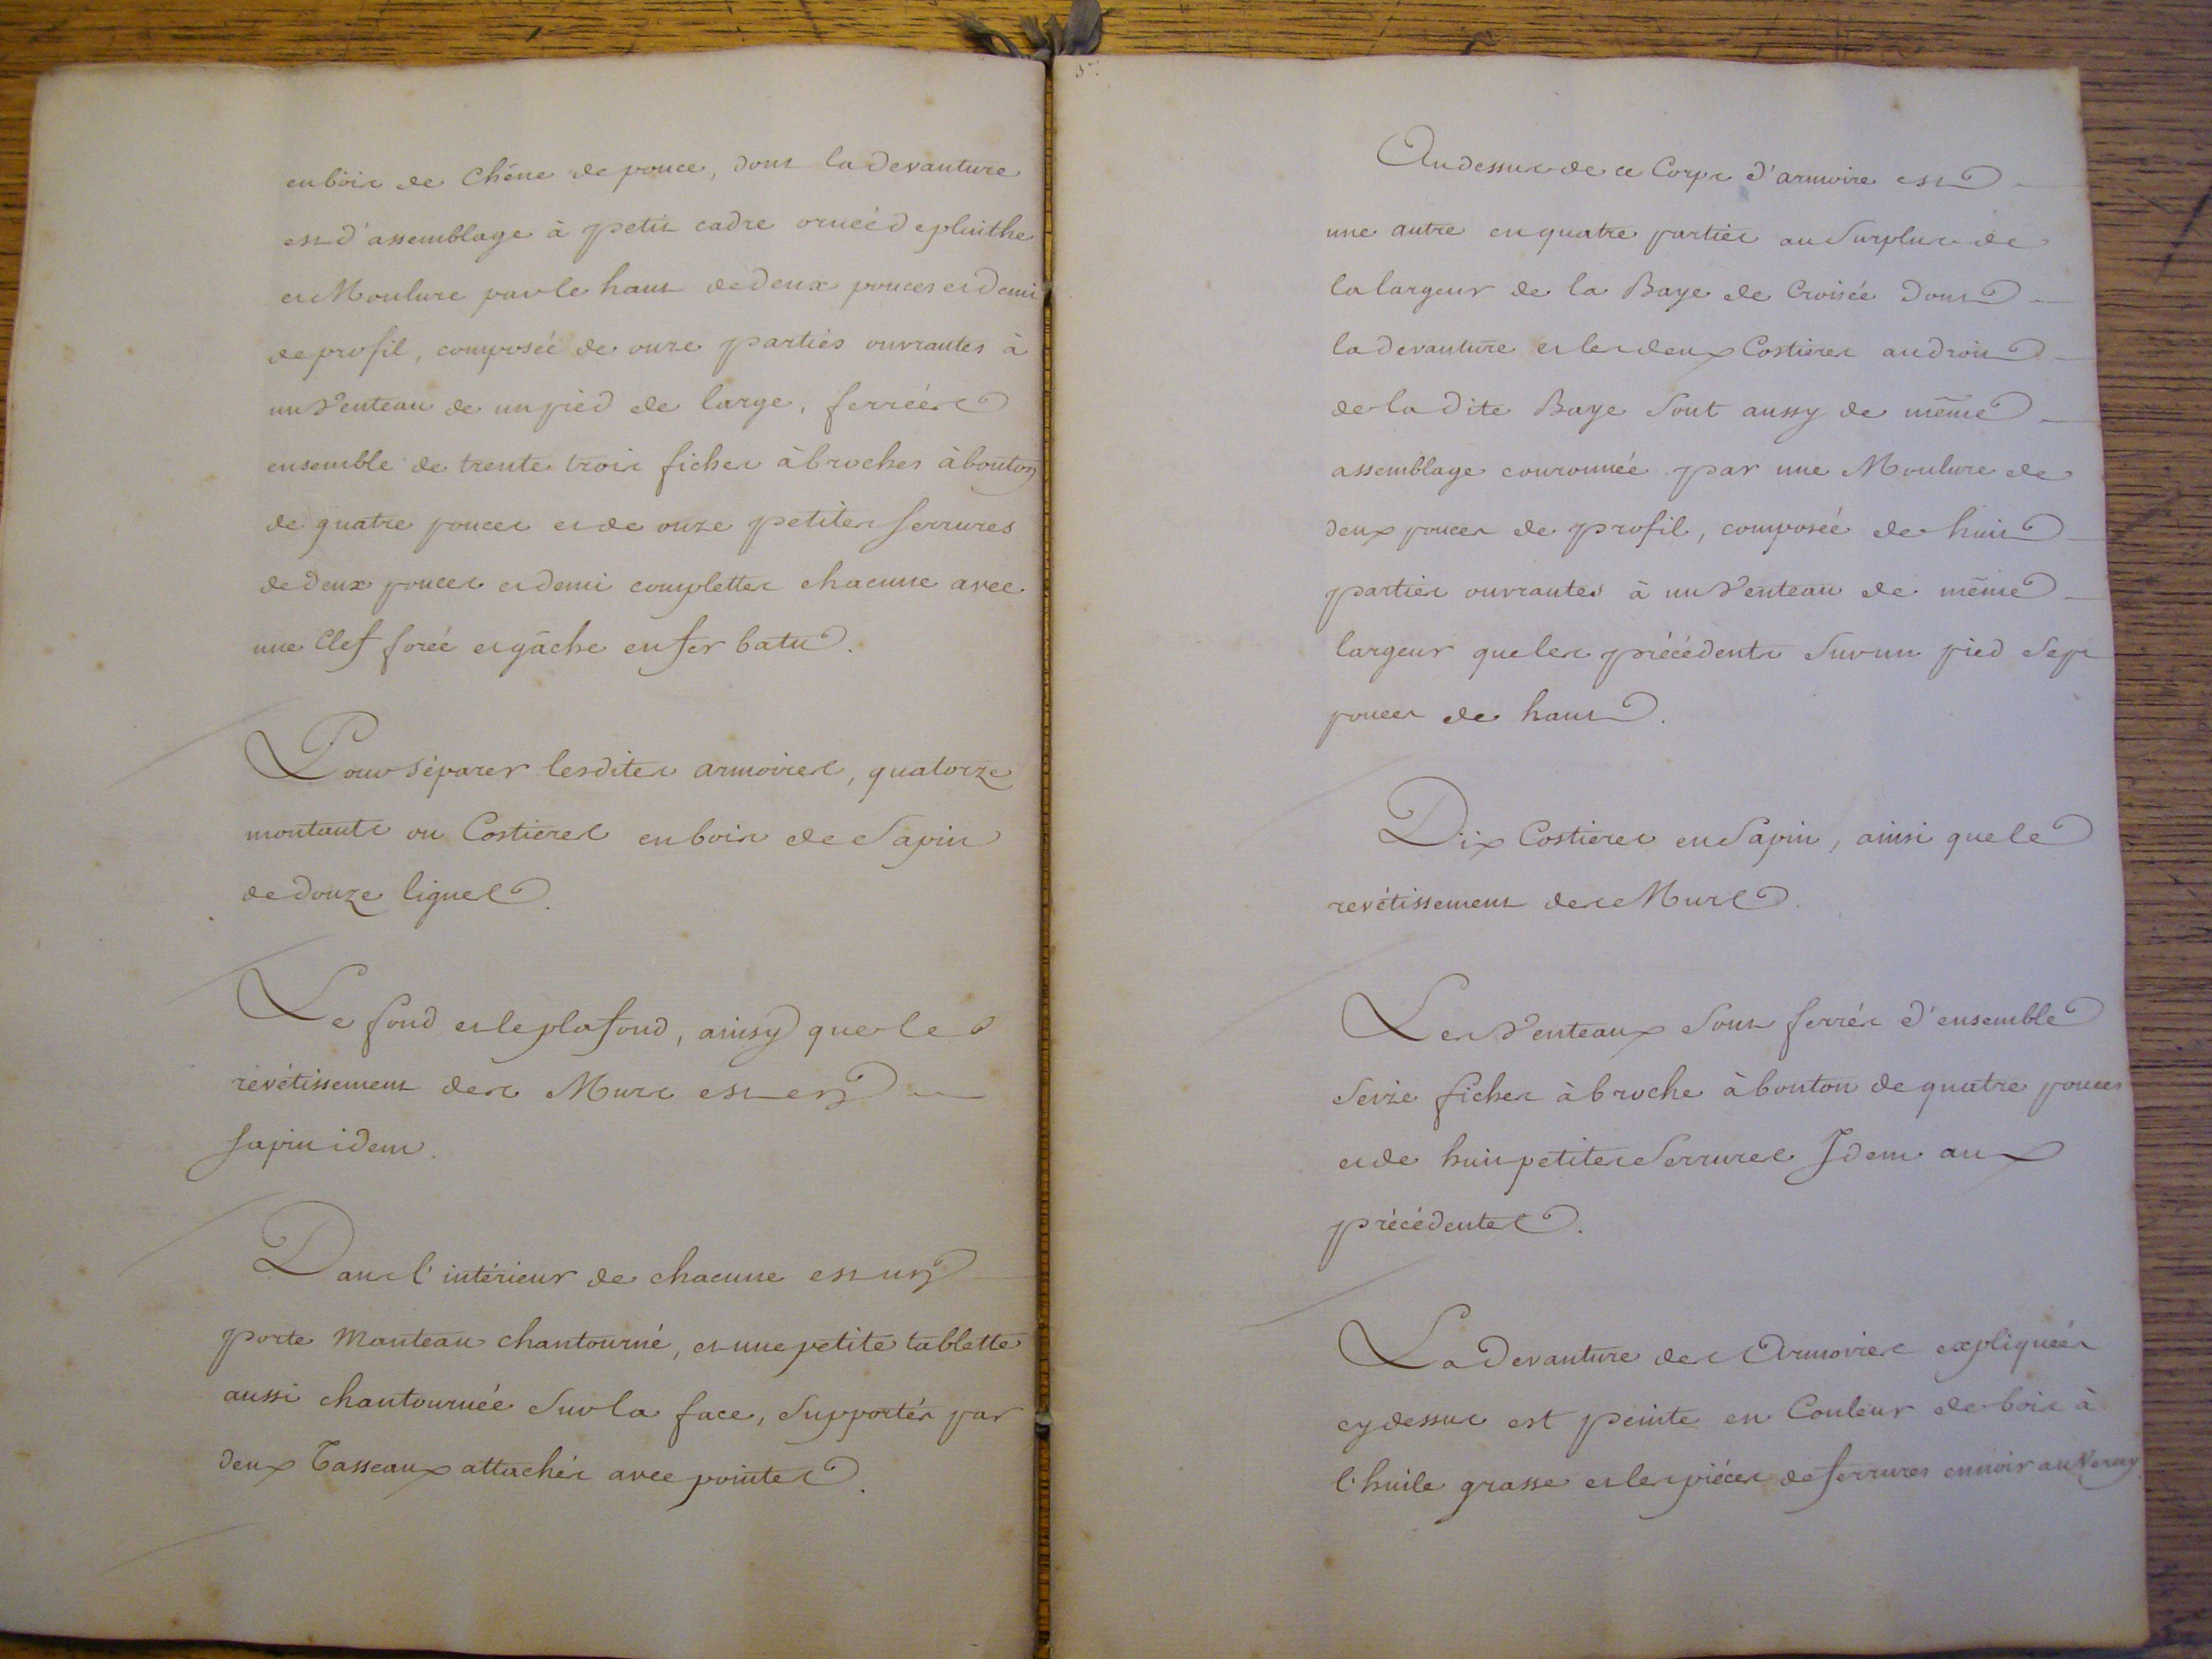 en bois de Chêne de pouce, dont la devanture
est d'assemblage à petit cadre ornéé de plinthe
et Moulure par le haut de deux pouces et demi
de profil, composéé de onze parties ouvrantes à
un Venteau de un pied de large, ferréés
ensemble de trente trois fiches à broches à bouton
de quatre pouces et de onze petites serrures
de deux pouces et demi complettes chacune avec
une Clef foréé et gâche en fer batu.
Pour séparer lesdites armoires, quatorze
montants ou Costieres en bois de Sapin
de douze lignes.
Le fond et le plafond, ainsy que le
revétissement des Murs est en
sapin idem.
Dans l'intérieur de chacune est un
porte Manteau chantourné, et une petite tablette
aussi chantournéé Sur la face, Supportés par
deux Tasseaux attachés avec pointes.
3e.
Au dessus de ce Corps d'armoire est
une autre en quatre parties au Surplus de
la largeur de la Baye de Croisée dont
la devanture et les deux Costieres au droit
de la dite Baye Sont aussy de même
assemblage couronnéé par une Moulure de
deux pouces de profil, composéé de huit
parties ouvrantes à un Venteau de même
largeur que les précédents Sur un pied Sept
pouces de haut.
Dix Costieres en Sapin, ainsi que le
revétissement des Murs.
Les Venteaux Sont ferrés d'ensemble
Seize fiches à broche à bouton de quatre pouces
et de huit petites Serrures Idem aux
précédentes.
La Devanture des Armoires expliquéés
cy dessus est peinte en Couleur de bois à
l'huile grasse et les piéces de ferrures en noir au Verny